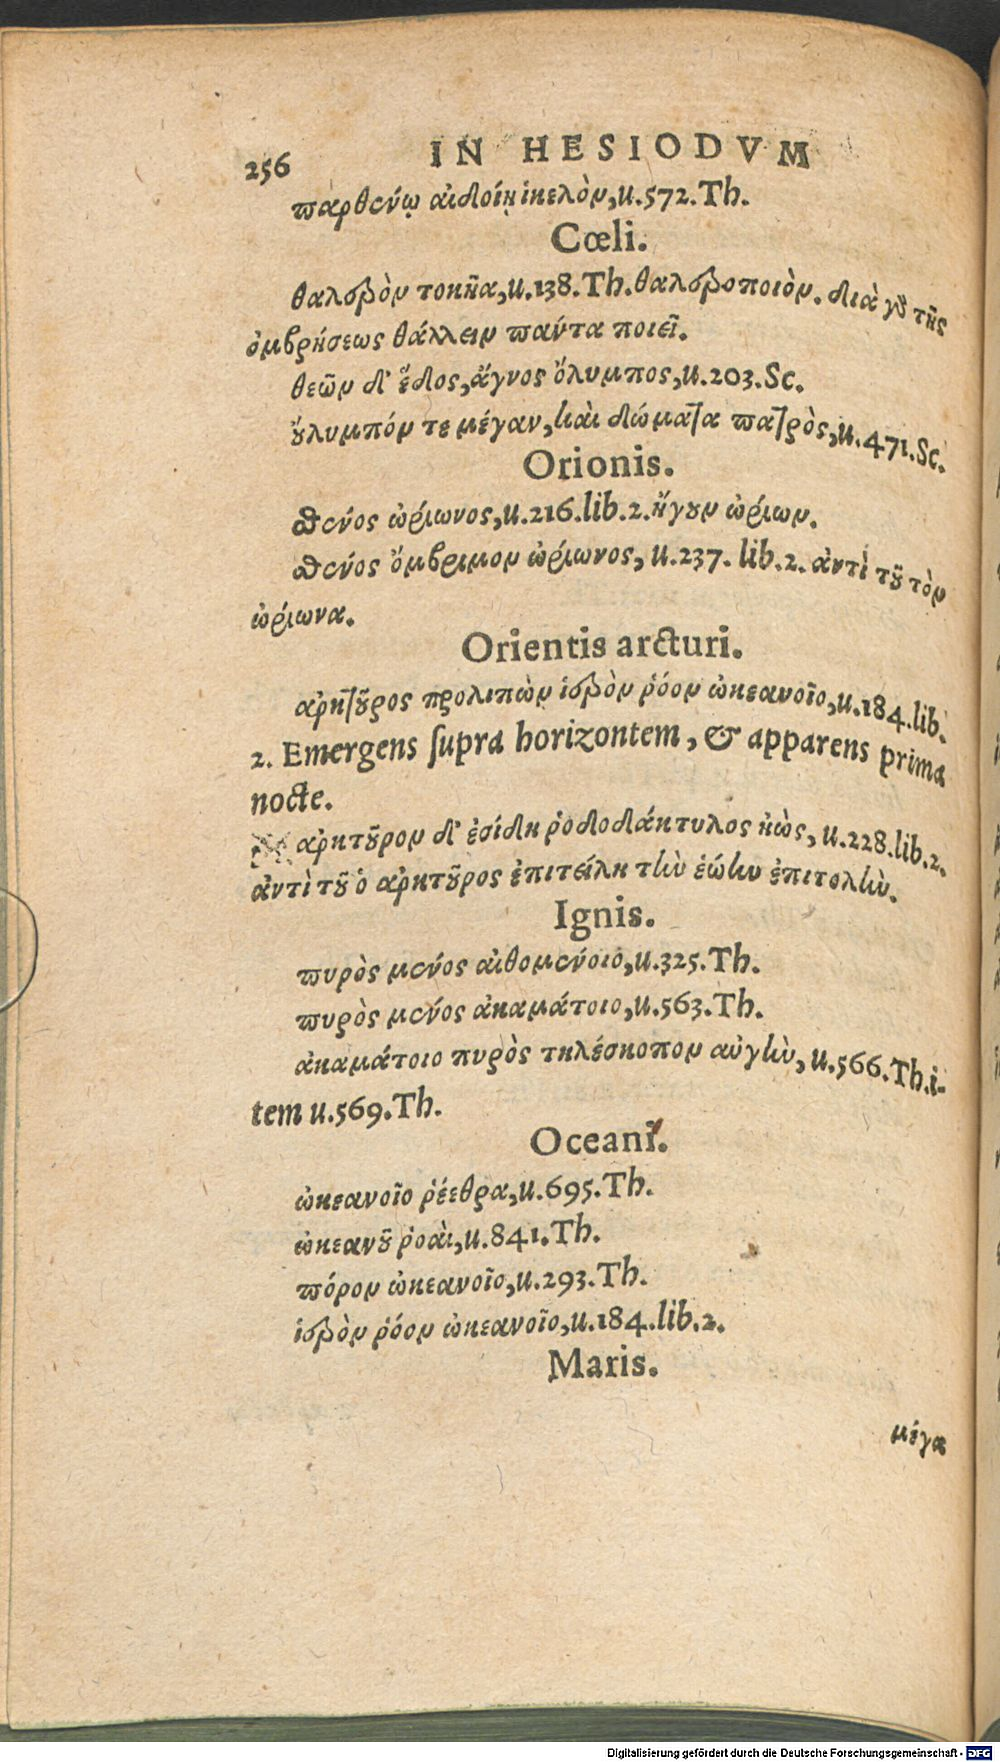 256 IN HESIODVM
παρθένῳ αἰδοίῃ ἰκελὸν, u.572.Th.
Cœli.
θαλερὸν τοκῆα, u.138.Th. θαλεροποιὸν. διὰ γὰρ τῆς
ὀμβρήσεως θάλλειν πάντα ποιεῖ.
θεῶν δ' ἕδος, ἄγνος ὄλυμπος, u.203.Sc.
ὄλυμπόν τε μέγαν, καὶ δώματα πατρὸς, u.471.Sc.
Orionis.
σθένος ὠρίωνος, u.216.lib.2. ἤγουν ὠρίων.
σθένος ὄμβριμον ὠρίωνος, u.237. lib.2. ἀντὶ τοῦ τὸν
ὠρίωνα.
Orientis arcturi.
ἀρκτοῦρος προλιπὼν ἱερὸν ῥόον ὠκεανοῖο, u.184.lib.
2. Emergens ſupra horizontem, & apparens prima
nocte.
ἀρκτοῦρον δ' ἐσίδῃ ῥοδοδάκτυλος ἠὼς, u.228.lib.2.
ἀντὶ τοῦ ὁ ἀρκτοῦρος ἐπιτείλῃ τὴν ἑώην ἐπιτολὴν.
Ignis.
πυρὸς μένος αἰθομένοιο, u.325.Th.
πυρὸς μένος ἀκαμάτοιο, u.563.Th.
ἀκαμάτοιο πυρὸς τηλέσκοπον αὐγὴν, u.566.Th.i-
tem u.569.Th.
Oceani.
ὠκεανοῖο ῥέεθρα, u.695.Th.
ὠκεανοῦ ῥοαὶ, u.841.Th.
πόρον ὠκεανοῖο, u.293.Th.
ἱερὸν ῥόον ὠκεανοῖο, u.184.lib.2.
Maris.
μέγα
Digitalisierung gefördert durch die Deutsche Forschungsgemeinschaft - DFG